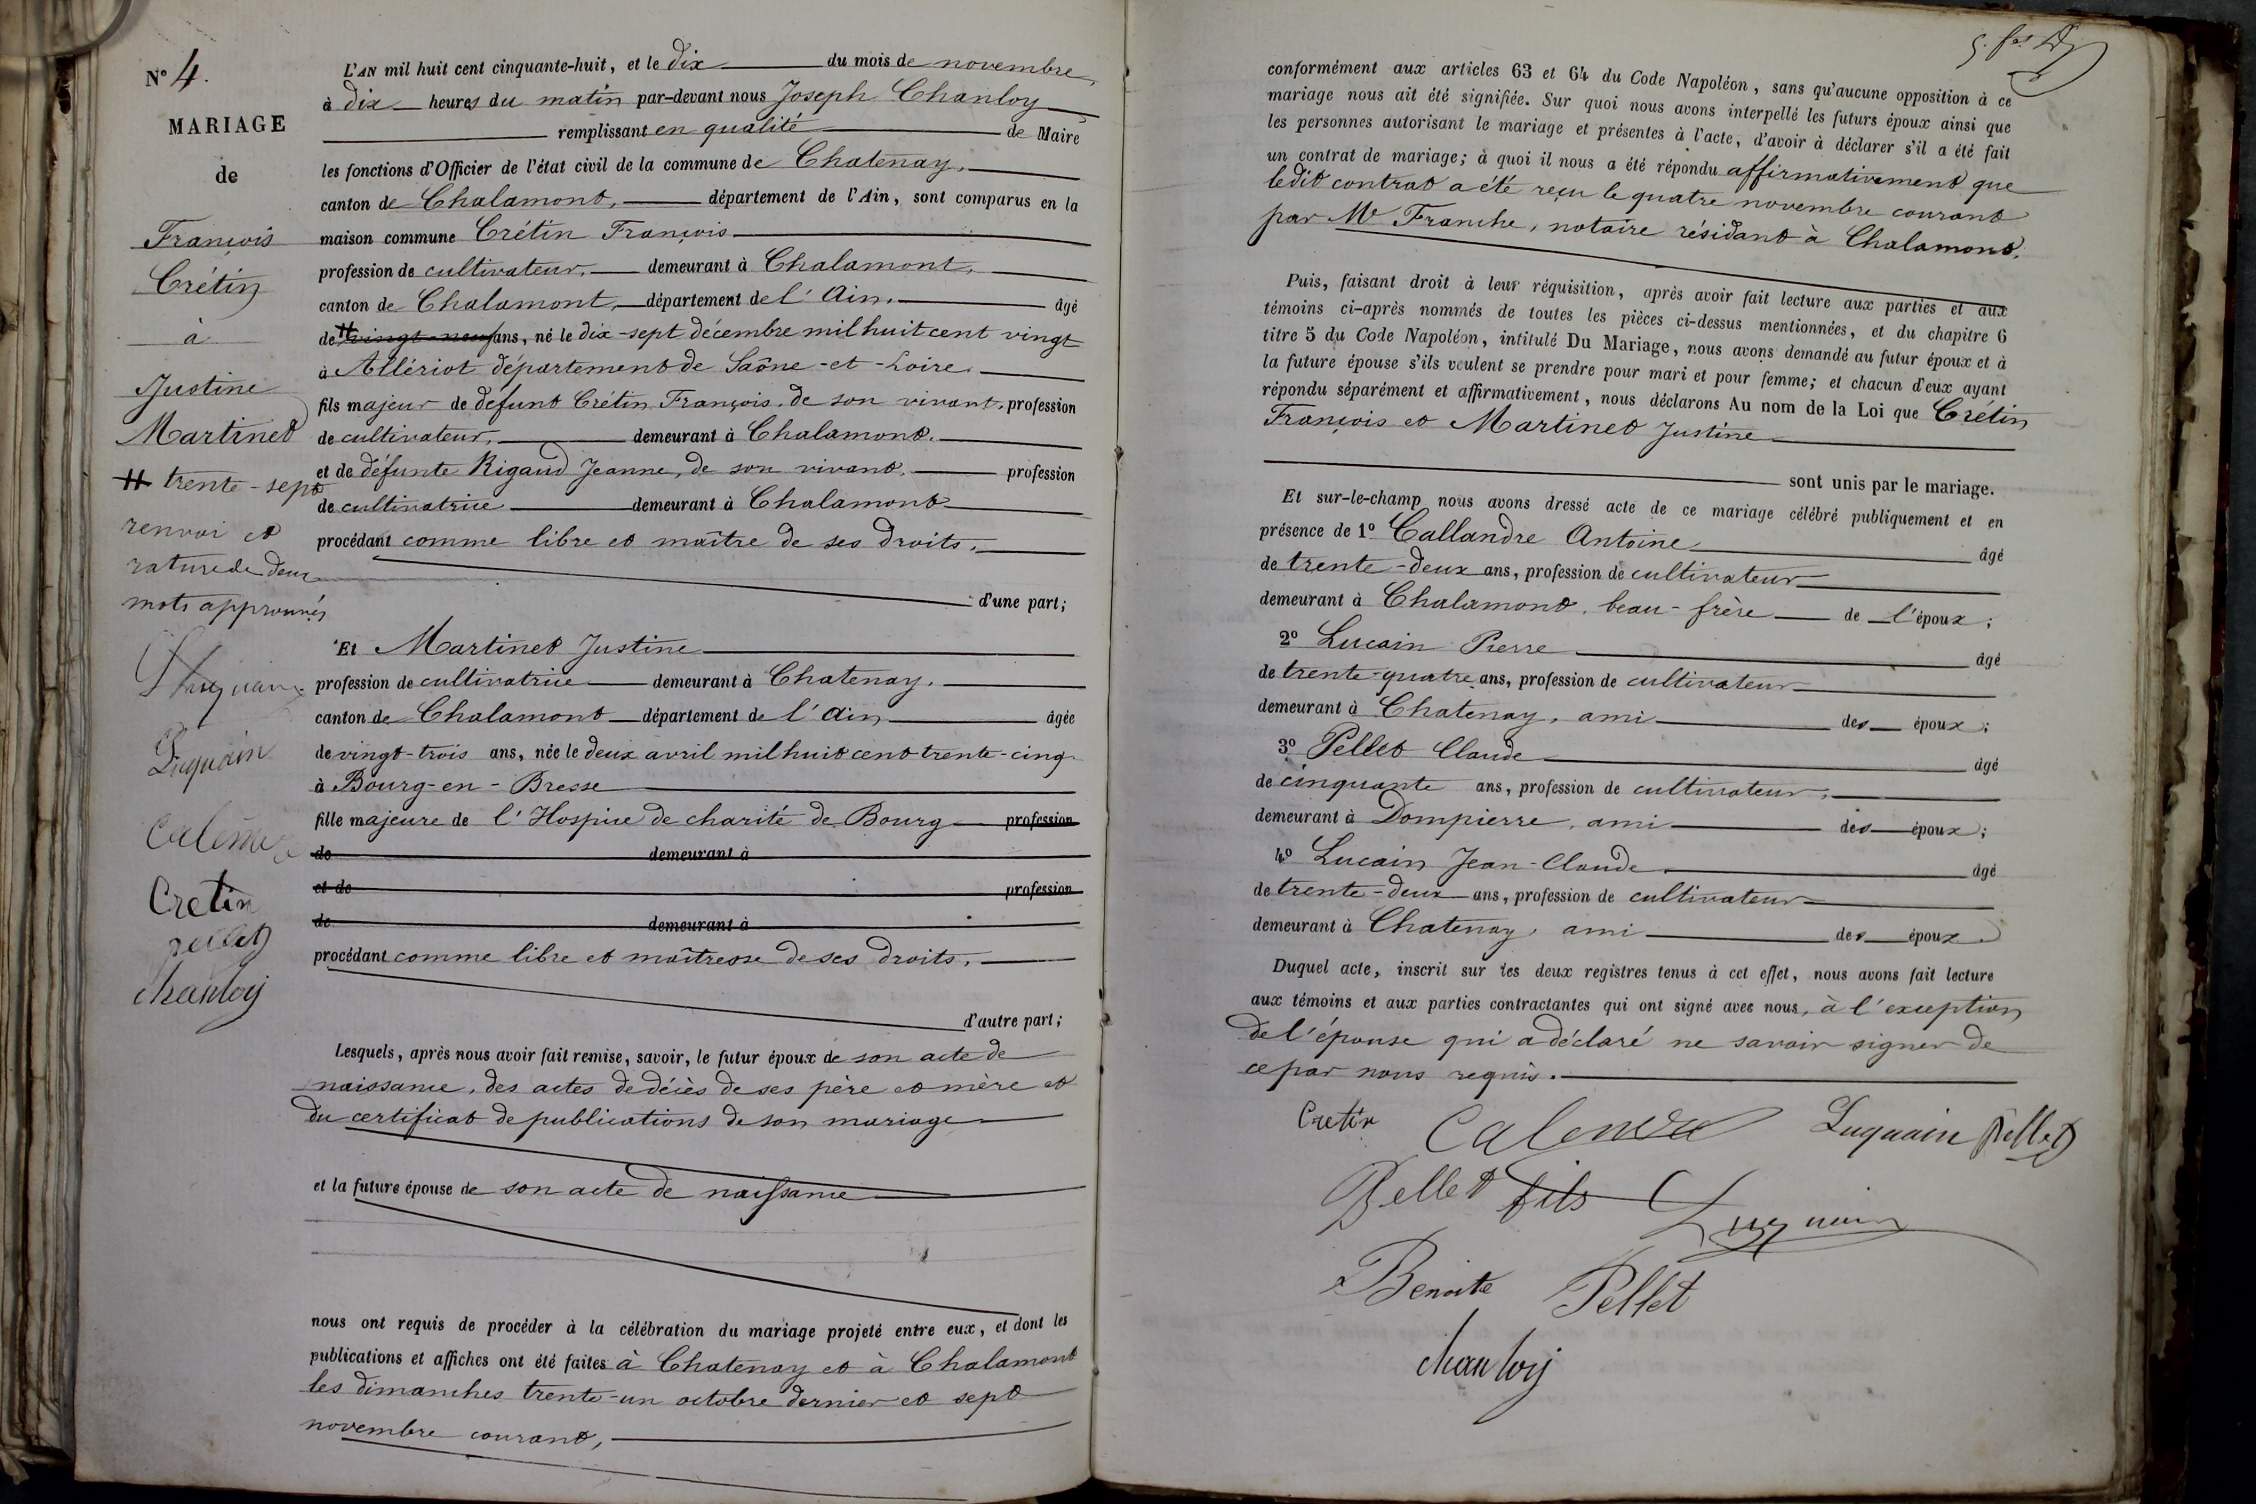 N° 4.
MARIAGE
de
François
Crétin
à
Justine
Martinet
# trente-sept
renvoi et
rature de deux
mots approuvés
Luquain
Cretin
pellet
chanloy
L'AN mil huit cent cinquante-huit, et le dix du mois de novembre,
à dix heures du matin par-devant nous Joseph Chanloy
remplissant en qualité de Maire
les fonctions d'Officier de l'état civil de la commune de Chatenay,
canton de Chalamont, département de l'Ain, sont comparus en la
maison commune Crétin François
profession de cultivateur, demeurant à Chalamont,
canton de Chalamont, département de l'Ain, âgé
de # vingt-neuf ans, né le dix-sept décembre mil huit cent vingt
à Allériot département de Saône-et-Loire,
fils majeur de défunt Crétin François, de son vivant, profession
de cultivateur, demeurant à Chalamont.
et de défunte Rigaud Jeanne, de son vivant, profession
de cultivatrice demeurant à Chalamont
procédant comme libre et maître de ses droits,
d'une part;
Et Martinet Justine
profession de cultivatrice demeurant à Chatenay,
canton de Chalamont département de l'Ain âgée
de vingt-trois ans, née le deux avril mil huit cent trente-cinq
à Bourg-en-Bresse
fille majeure de l'Hospice de charité de Bourg profession
de demeurant à
et de profession
de demeurant à
procédant comme libre et maîtresse de ses droits,
d'autre part;
Lesquels, après nous avoir fait remise, savoir, le futur époux de son acte de
naissance, des actes de décès de ses père et mère et
du certificat de publications de son mariage
et la future épouse de son acte de naissance
nous ont requis de procéder à la célébration du mariage projeté entre eux, et dont les
publications et affiches ont été faites à Chatenay et à Chalamont
les dimanches trente-un octobre dernier et sept
novembre courant,
conformément aux articles 63 et 64 du Code Napoléon, sans qu'aucune opposition à ce
mariage nous ait été signifiée. Sur quoi nous avons interpellé les futurs époux ainsi que
les personnes autorisant le mariage et présentes à l'acte, d'avoir à déclarer s'il a été fait
un contrat de mariage; à quoi il nous a été répondu affirmativement que
ledit contrat a été reçu le quatre novembre courant
par Me Franche, notaire résidant à Chalamont.
Puis, faisant droit à leur réquisition, après avoir fait lecture aux parties et aux
témoins ci-après nommés de toutes les pièces ci-dessus mentionnées, et du chapitre 6
titre 5 du Code Napoléon, intitulé Du Mariage, nous avons demandé au futur époux et à
la future épouse s'ils veulent se prendre pour mari et pour femme; et chacun d'eux ayant
répondu séparément et affirmativement, nous déclarons Au nom de la Loi que Crétin
François et Martinet Justine
sont unis par le mariage.
Et sur-le-champ nous avons dressé acte de ce mariage célébré publiquement et en
présence de 1° Callandre Antoine âgé
de trente-deux ans, profession de cultivateur
demeurant à Chalamont, beau-frère de l'époux;
2° Lucain Pierre âgé
de trente-quatre ans, profession de cultivateur
demeurant à Chatenay, ami des époux;
3° Pellet Claude âgé
de cinquante ans, profession de cultivateur,
demeurant à Dompierre, ami des époux;
4° Lucain Jean-Claude âgé
de trente-deux ans, profession de cultivateur
demeurant à Chatenay, ami des époux.
Duquel acte, inscrit sur les deux registres tenus à cet effet, nous avons fait lecture
aux témoins et aux parties contractantes qui ont signé avec nous, à l'exception
de l'épouse qui a déclaré ne savoir signer de
ce par nous requis.
Cretin Luquain Pellet
Pellet fils Luquain
Benoite Pellet
chanloy